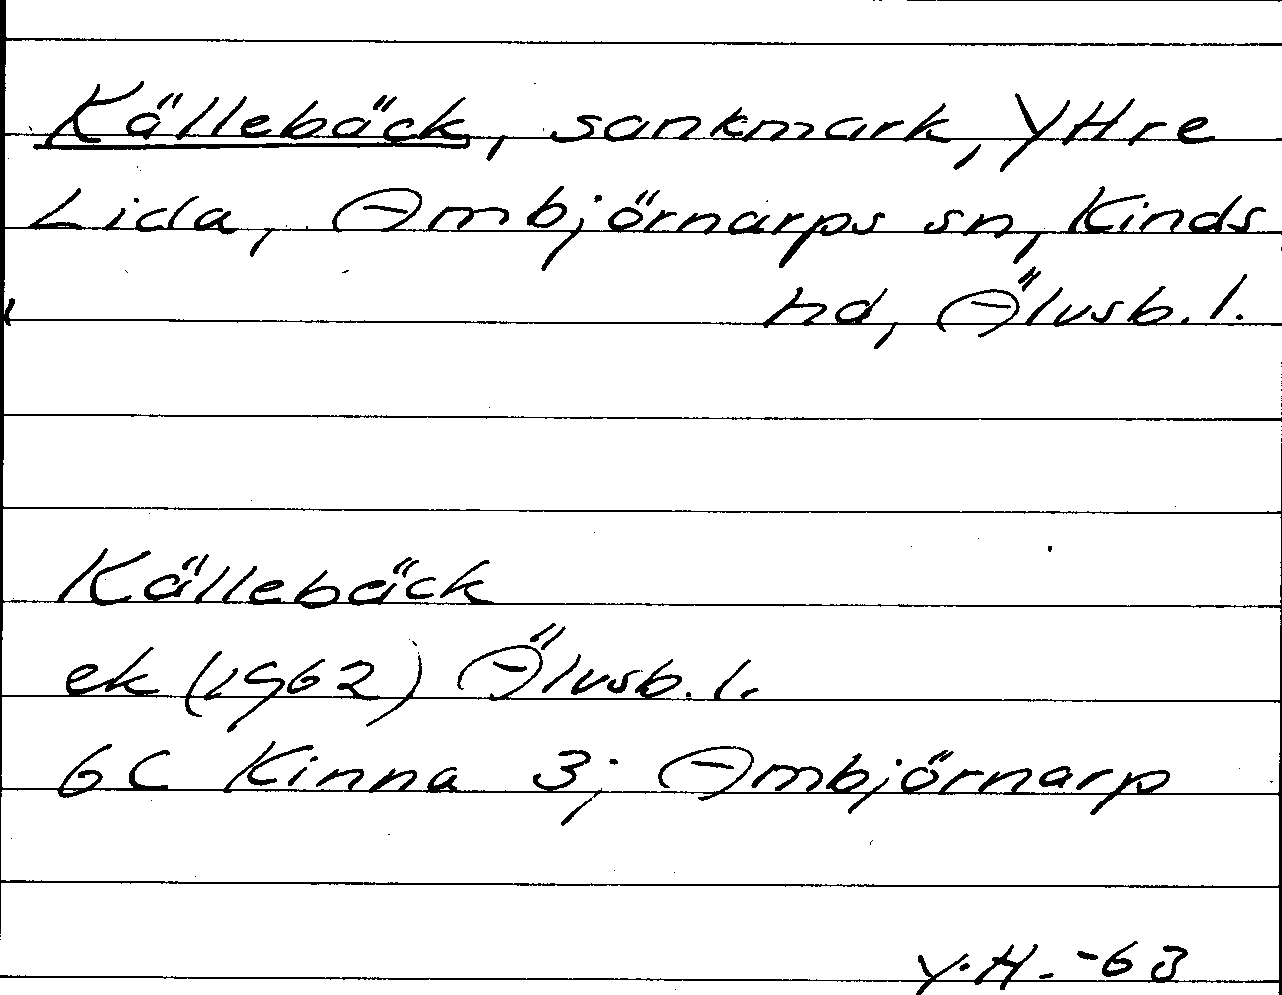 Källebäck, sankmark, Yttre
Lida, Ambjörnarps sn, Kinds
hd, Älvsb. l.
Källebäck
ek (1962) Älvsb. l.
6C Kinna 3; Ambjörnarp
Y.H. -63